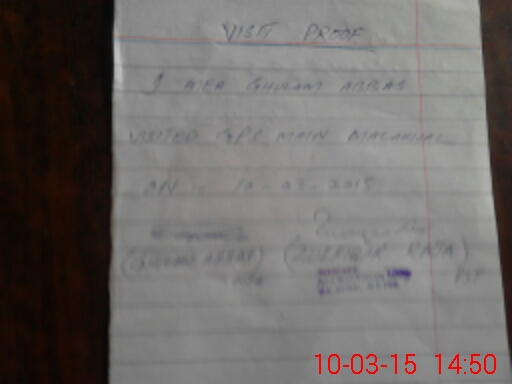 VISIT PROOF
I AEA GHULAM ABBAS
VISITED GPS MAIN MALAKWAL
ON 10-03-2015
(GHULAM ABBAS) (ZULFIQAR RAJA)
AEA PST
10-03-15 14:50